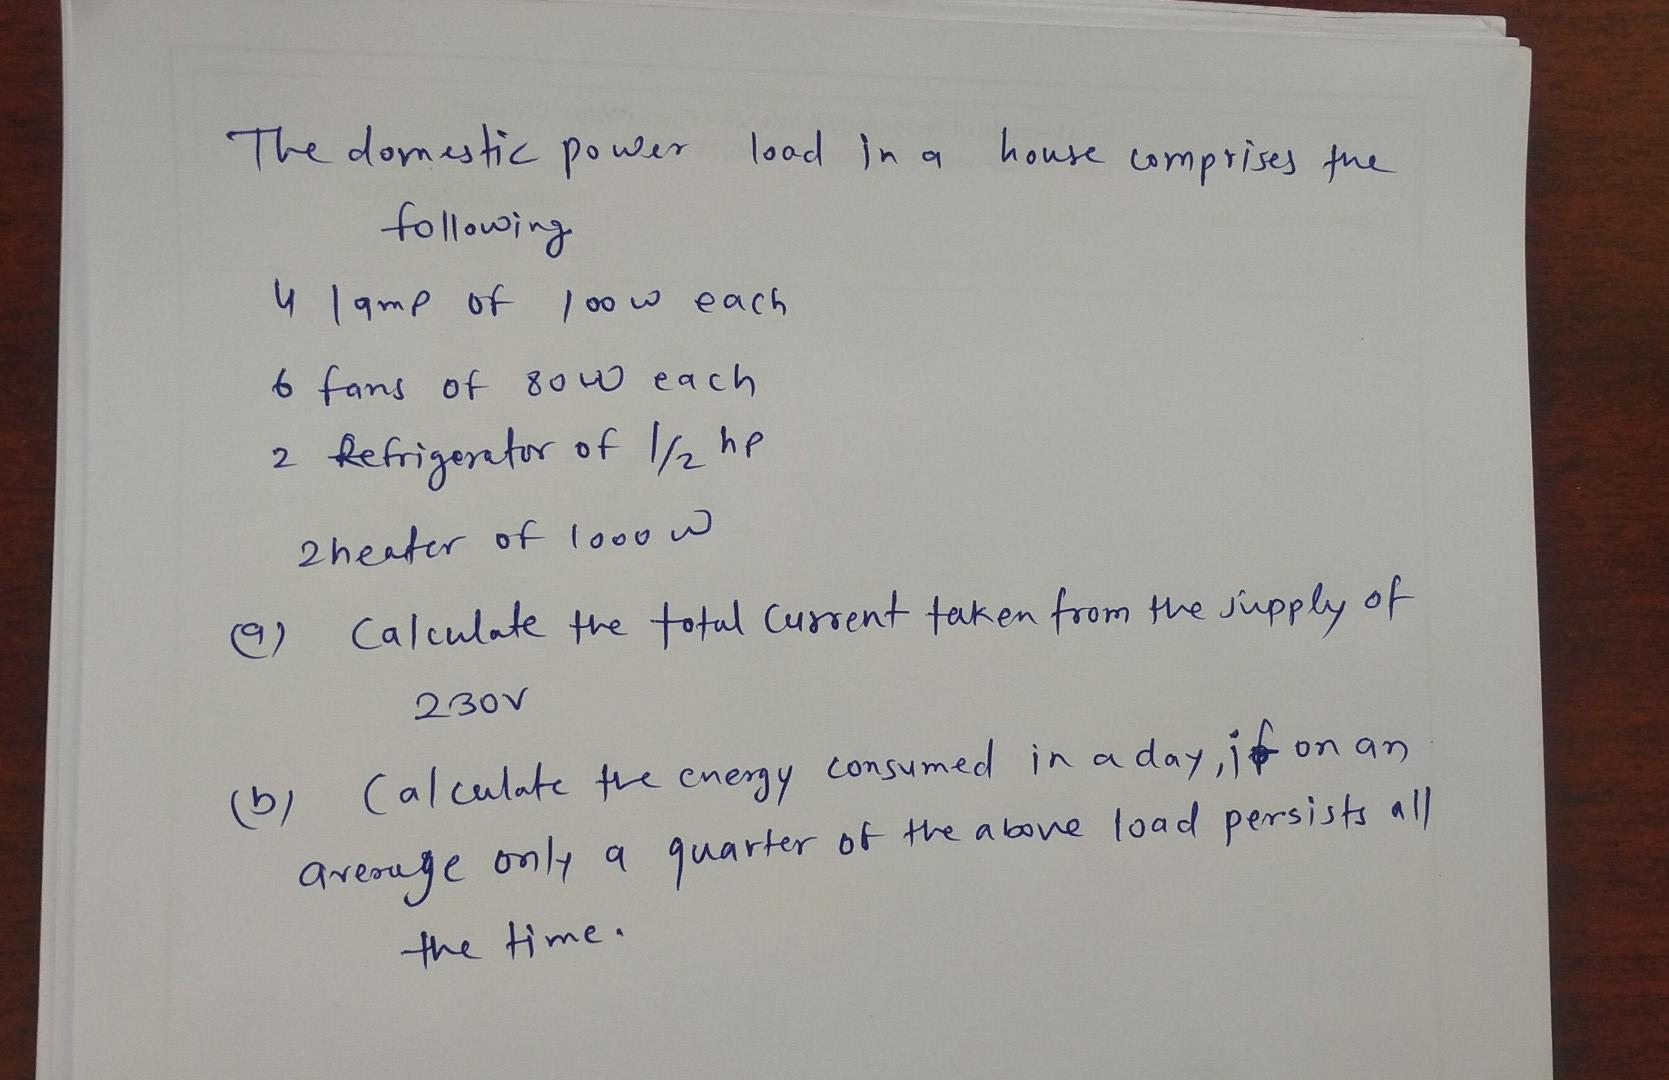 The domestic power load in a house comprises the
following
4 lamp of 100w each
6 fans of 80W each
2 Refrigerator of 1/2 hp
2 heater of 1000 W
(a) Calculate the total current taken from the supply of
230V
(b) Calculate the energy consumed in a day, if on an
average only a quarter of the above load persists all
the time.